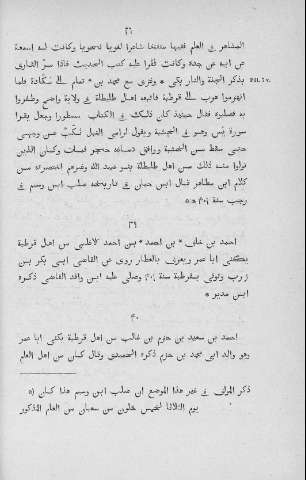 ٢٦
المشاهر في العلم فقيها متفننا شاعرا لغويا نحويا وكانت له اسمعة
عن ابيه عن جده وكانت قرا عليه كتب الحديث فاذا سر القارئ
بذكر الجنة والنار بكى * وغزى مع محمد بن * تمام الى مكادة فلما
انهزموا هرب الى قرطبة فاتبعه اهل طليطلة في ولاية واضح وظفروا
به فصلبوه فقال حينئذ كان ذلك في الكتاب مسطورا وجعل يقرا
سورة يس وهو في الخشبة ويقول لرامى النبل نكب عن وجهى
حتى سقط من الخشبة ووافق دماغه حجر فمات وكان الذين
تولوا منه ذلك من اهل طليطلة بنو عبيد الله وغيرهم اختصرته من
كلام ابن مطاهر قال ابن حيان في تاريخه صلب ابن وسم في
رجب سنة ٤٠١ * a)
٣٩
احمد بن خلف * بن احمد * بس احمد الاغلبى من اهل قرطبة
يكنى ابا عمر ويعرف بالعطار روى عن القاضى ابى بكر بس
زرب وتوفى بقرطبة سنة ٤٠١ وصلى عليه ابن وافد القاضى ذكره
ابس مدير *
٤٠
احمد بن سعيد بن حزم بن غالب من اهل قرطبة يكنى ابا عمر
وهو والد ابى محمد بن حزم ذكره الحميدى وقال كان من اهل العلم
a) ذكر المؤلف في غير هذا الموضع ان صلب ابن وسم هذا كان
يوم الثلاثا لخمس خلون من شعبان من العام المذكور